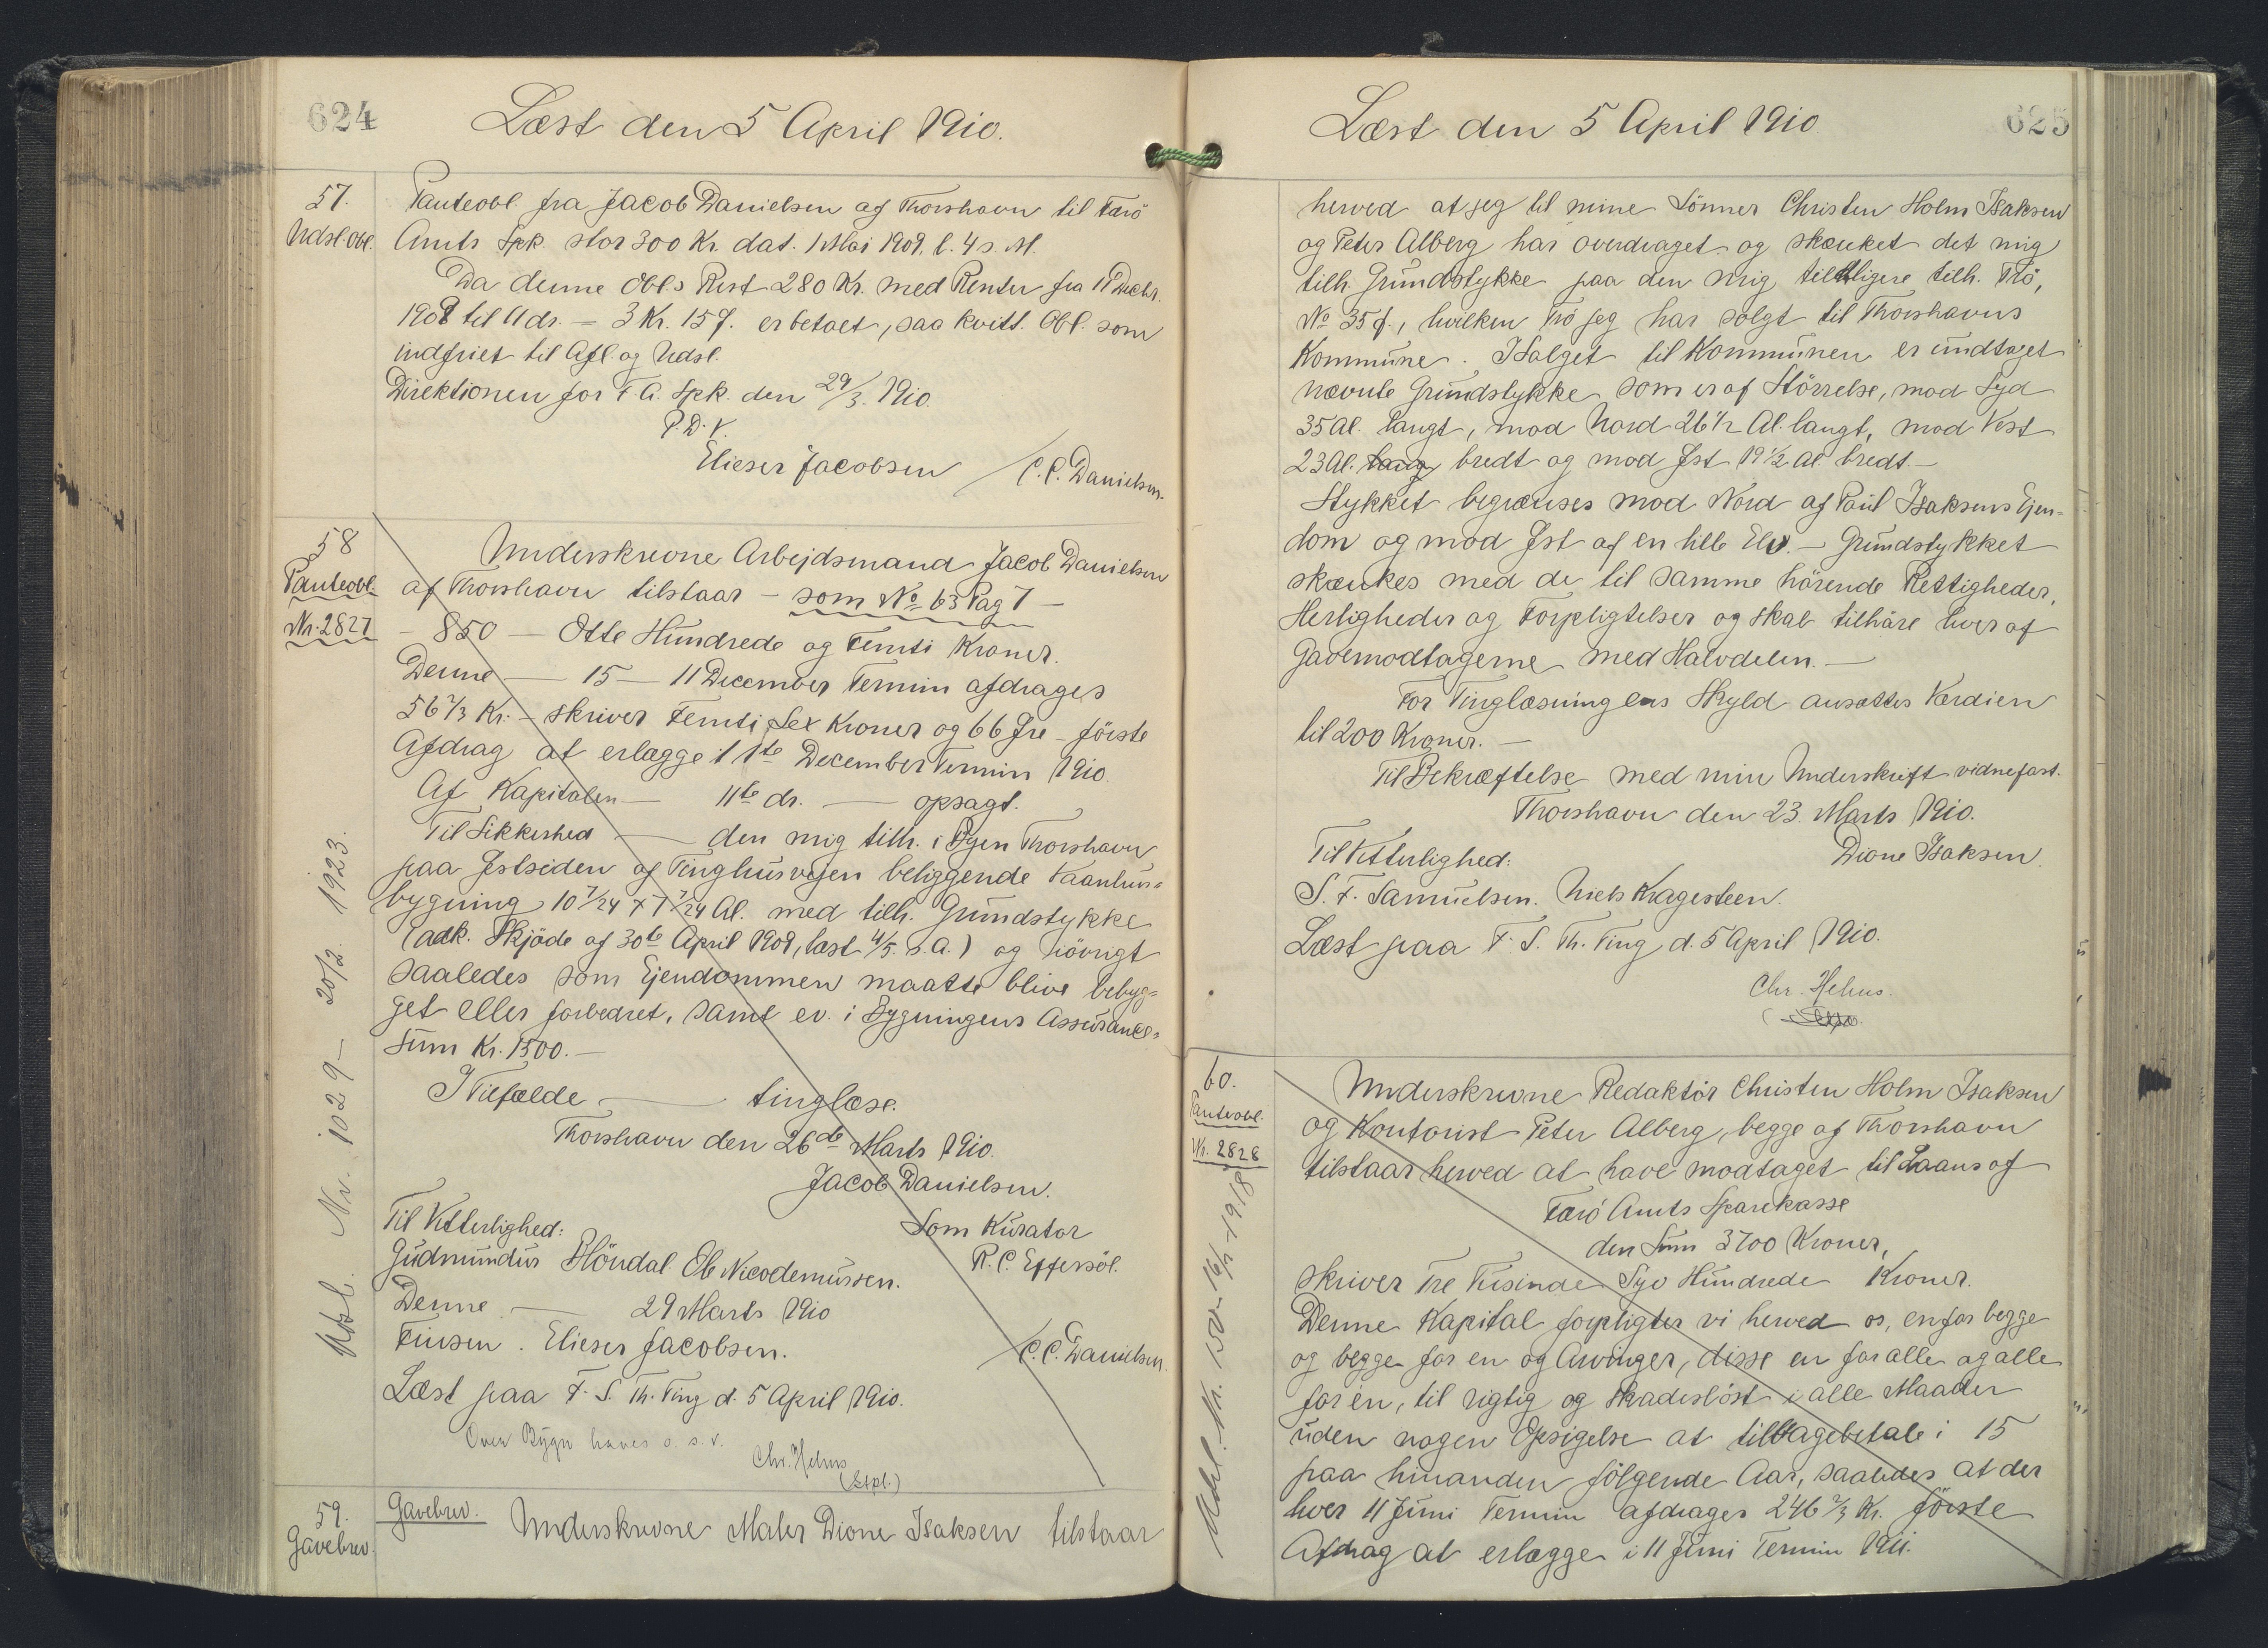 624
Læst den 5 April 1910.
57.
Udsl. Obl.
Panteobl. fra Jacob Danielsen af Thorshavn til Færö
Amts Spk. stor 300 Kr. dat. 1 Mai 1909, l. 4 s. M.
Da denne Obl.s Rest 280 Kr. med Renter fra 11 Decbr.
1909 til 11 ds. = 3 Kr. 15 f. er betalt, saa kvitt. Obl. som
indfriet til Afl. og Udsl.
Direktionen for F. A. Spk. den 29/3. 1910.
P.D.V.
Elieser Jacobsen / C.C. Danielsen.
58
Panteobl.
Nr. 2827
Underskrevne Arbejdsmand Jacob Danielsen
af Thorshavn tilstaar – som No 63 Pag 7 –
– 850 – Otte Hundrede og Femti Kroner.
Denne – 15 – 11 December Termin afdrages
56 2/3 Kr. – skriver Femti Sex Kroner og 66 Øre – förste
Afdrag at erlægge i 11te December Termin 1910.
Af Kapitalen – 11te ds. – opsagt.
Til Sikkerhed – den mig tilh. i Byen Thorshavn
paa Østsiden af Tinghusvejen beliggende Vaanhus-
bygning 10 7/24 × 7 7/24 Al. med tilh. Grundstykke
(adk. Skjöde af 30te April 1909, læst 4/5. s.A.) og iövrigt
saaledes som Ejendommen maatte blive bebyg-
get eller forbedret, samt ev. i Bygningens Assurance-
Sum Kr. 1500. –
I Tilfælde – tinglæse.
Thorshavn den 26de Marts 1910.
Jacob Danielsen.
Til Vitterlighed:
Som Kurator
Gudmundur Blöndal. Ole Nicodemussen.
R.C. Effersöl.
Denne – 29 Marts 1910
Finsen. Elieser Jacobsen. / C.C. Danielsen.
Læst paa F. S. Th. Ting d. 5 April 1910.
Over Bygn haves o. s. v.
Chr. Hehus
(Expl.)
Udsl. Nr. 1029 – 20/2. 1923.
59.
Gavebrev.
Gavebrev.
Underskrevne Maler Dione Isaksen tilstaar
625
Læst den 5 April 1910
herved at jeg til mine Sönner Christen Holm Isaksen
og Peter Alberg har overdraget og skænket det mig
tilh. Grundstykke paa den mig tidligere tilh. Trö,
No 35 f., hvilken Trö jeg har solgt til Thorshavns
Kommune. I Salget til Kommunen er undtaget
nævnte Grundstykke som er af Störrelse, mod Syd
35 Al. langt, mod Nord 26 1/2 Al. langt, mod Vest
23 Al. lang bredt og mod Øst 19 1/2 Al. bredt. –
Stykket begrænses mod Nord af Paul Isaksens Ejen-
dom og mod Øst af en lille Elv. – Grundstykket
skænkes med de til samme hörende Rettigheder,
Herligheder og Forpligtelser og skal tilhöre hver af
Gavemodtagerne med Halvdelen. –
For Tinglæsningens Skyld ansættes Værdien
til 200 Kroner. –
Til Bekræftelse med min Underskrift vidnefast.
Thorshavn den 23. Marts 1910.
Dione Isaksen.
Til Vitterlighed:
S. F. Samuelsen. Niels Kragesteen.
Læst paa F. S. Th. Ting d. 5 April 1910.
Chr. Hehus.
60.
Panteobl.
Nr. 2828
Underskrevne Redaktör Christen Holm Isaksen
og Kontorist Peter Alberg, begge af Thorshavn
tilstaar herved at have modtaget til Laans af
Færö Amts Sparekasse
den Sum 3700 Kroner,
skriver Tre Tusinde Syv Hundrede Kroner.
Denne Kapital forpligter vi herved os, en for begge
og begge for en og Arvinger, disse en for alle og alle
for en, til rigtig og skadeslöst i alle Maader
uden nogen Opsigelse at tilbagebetale i 15
paa hinanden fölgende Aar, saaledes at der
hver 11 Juni Termin afdrages 246 2/3 Kr. förste
Afdrag at erlægge i 11 Juni Termin 1911.
Udsl. Nr. 150 – 16/1 – 1918